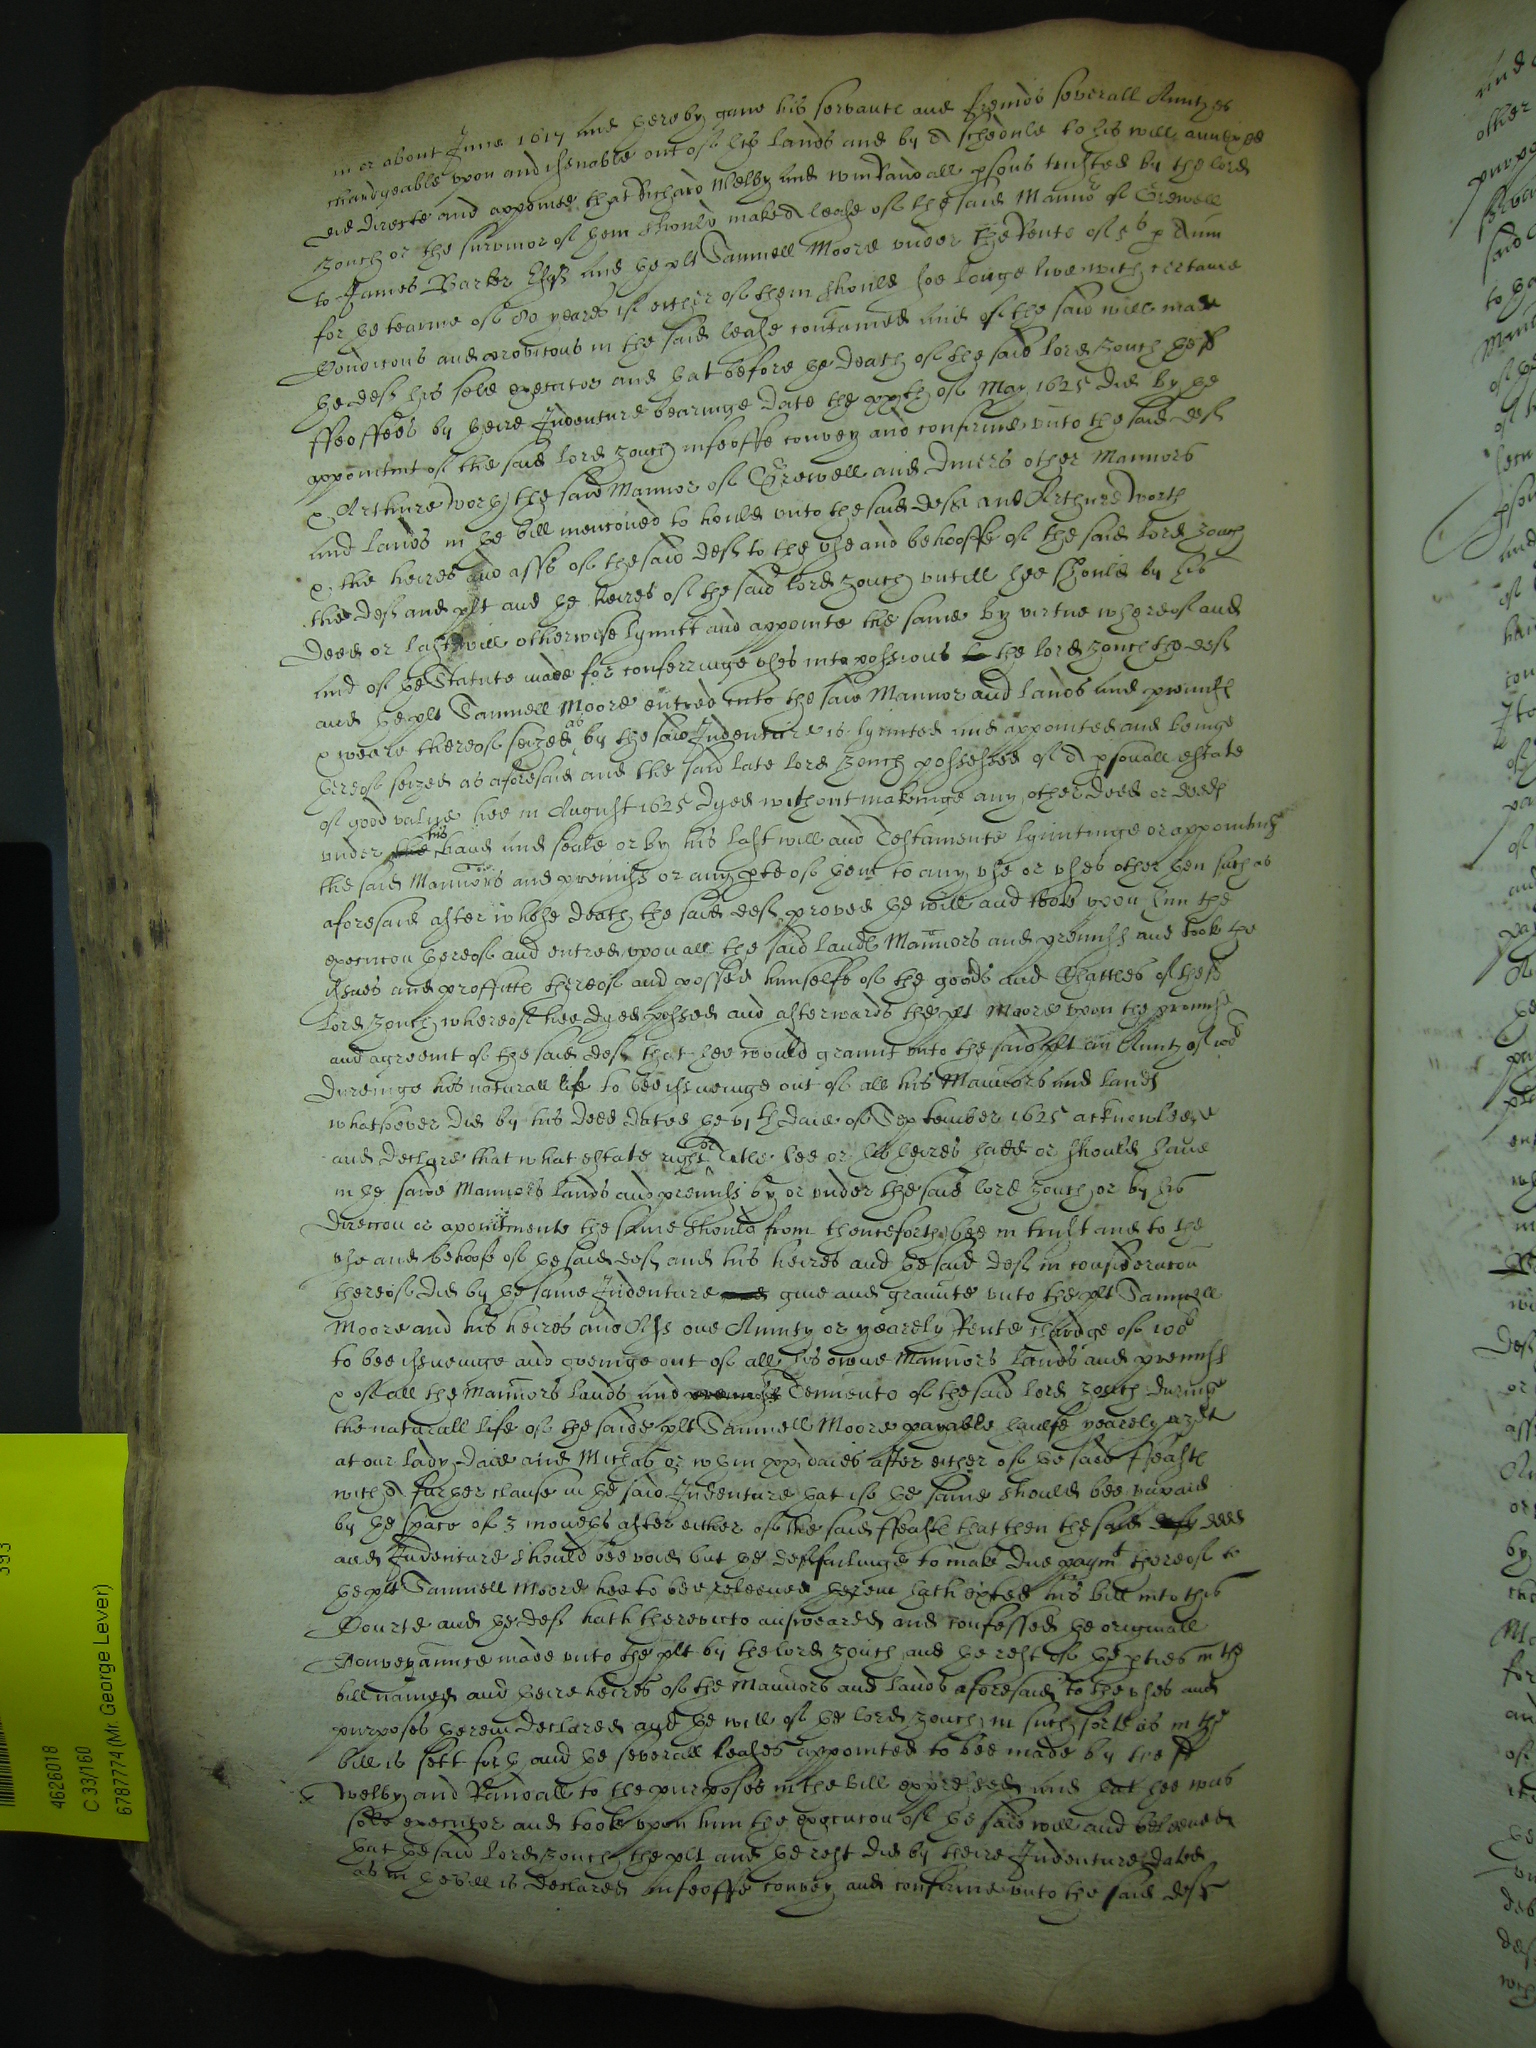 in or about June 1617 and hereby gave his servants and frends severall Annutyes
chardgeable upon and issueable out of his lands and by A schedule to his will annexed
did directe and appointe that Richard Welby and Wm Randall psons trusted by the lord
Zouch or the survivor of them should make A lease of the said Mannor of Orewell
to James Barker Esqr and the plt Samuell Moore under the Rente of 5s p Anm
for the tearme of 80 yeares if either of them should soe longe live with certaine
Condicons and provisions in the said lease contained and of the said will made
the deft his sole executor and that before the death of the said lord Zouch the sd
ffeoffees by theire Indenture bearinge Date the xxth of May 1625 did by the
appointmt of the said lord Zouch infeoffe convey and confirme unto the said deft
& Arthure Worth the said Mannor of Orewell and divers other Mannors
and lands in the bill mencioned to hould unto the said deft and Arthure Worth
& the heires and asss of the said deft to the use and behooffe of the said lord Zouch
the deft and plt and the heires of the said lord Zouch untill hee should by his
deed or last will otherwise lymitt and appointe the same by virtue whereof and
and of the Statute made for conferringe uses into possessions the lord Zouch the deft
and the plt Samuell Moore entred into the said Mannor and lands and premiss
& weare thereof seized as by the said Indenture is lymited and appointed and beinge
thereof seized as aforesaid and the said late lord Zouch possessed of A psonall estate
of good value hee in August 1625 dyed without makeinge any other deed or deeds
under the his hand and seale or by his last will and Testamente lymitinge or appointinge
the said Mannors and premiss or any pte of them to any use or uses other then such as
aforesaid after whose death the said deft proved the will and tooke upon him the
execucon thereof and entred upon all the said lands Mannors and premiss and tooke the
issues and proffitts thereof and possed himselfe of the goods and Chattles of the sd
lord Zouch whereof hee dyed possed and afterwards the plt Moore upon the promise
and agreemt of the said deft that hee would graunt unto the said plt an Annty of 100l
dureinge his naturall life to bee issueinge out of all his Mannors and lands
whatsoever did by his deed dated the vjth daie of September 1625 acknowledge
and declare that what estate right or title hee or his heires hadd or should have
in the said Mannors lands and premiss by or under the said lord Zouch or by his
direccon or apointmente the same should from thenceforth bee in trust and to the
use and behoofe of the said deft and his heires and the said deft in consideracon
thereof did by the same Indenture give and graunte unto the plt Samuell
Moore and his heires and Ass one Annuty or yearely Rente chardge of 100l
to bee issueinge and goeinge out of all his owne Mannors lands and premiss
& of all the Mannors lands and premiss Tenements of the said lord Zouch duringe
the naturall life of the said plt Samuell Moore payable halfe yearely
at our lady daie and Michas or wthin xx daies after either of the said ffeasts
with A further clause in the said Indenture that if the same should bee unpaid
by the space of 3 moneths after either of the said ffeasts that then the said deed
and Indenture should bee void but the deft failinge to make due paymt thereof to
the plt Samuell Moore hee to bee releeved therein hath exhted his bill into this
Courte and the deft hath thereunto answeared and confessed the originall
Conveyannce made unto the plt by the lord Zouch and the rest of the pties in the
bill named and theire heires of the Mannors and lands aforesaid to the uses and
purposes therein declared and the will of the lord Zouch in such sorte as in the
bill is sett forth and the severall leases appointed to bee made by the sd
Welby and Randall to the purposes in the bill expressed and that hee was
sole executor and tooke upon him the execucon of the said will and beleeved
that the said lord Zouch the plt and the rest did by theire Indentures dated
as in the bill is declared infeoffe convey and confirme unto the said deft
393
4626018
C 33/160
6787774 (Mr. George Lever)